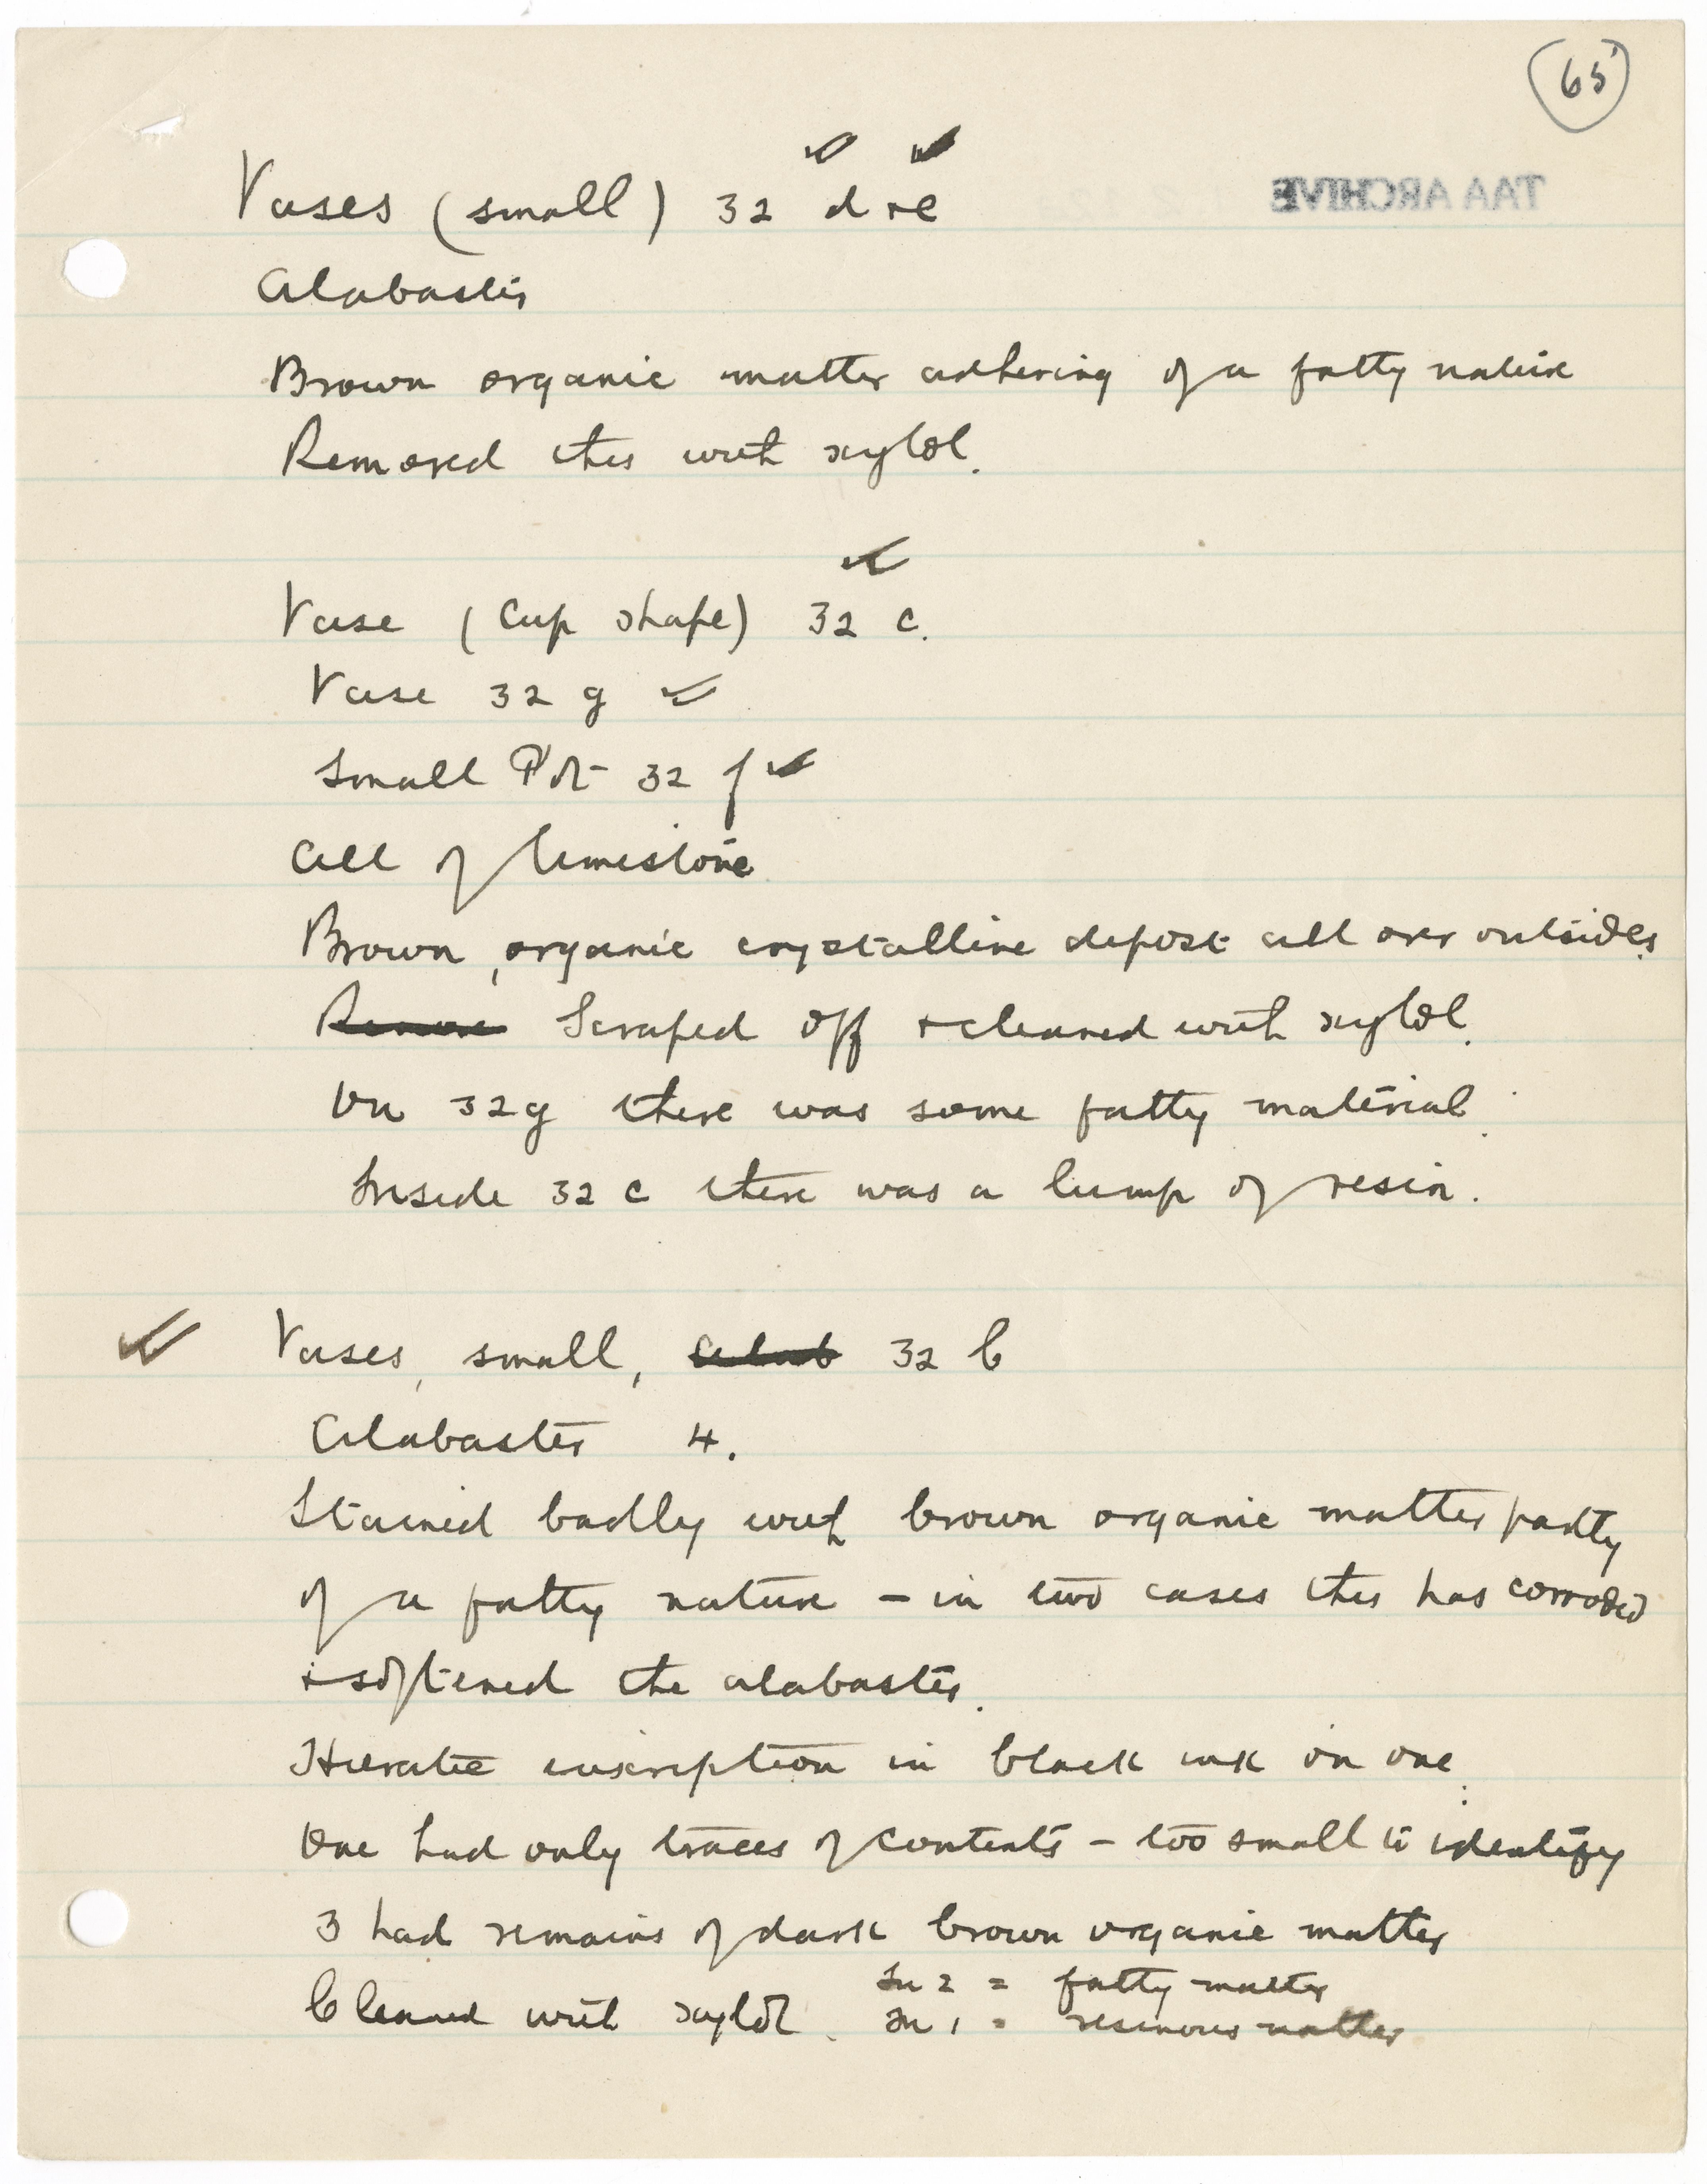 65
TAA ARCHIVE
Vases (small) 32 d + e
Alabaster
Brown organic matter adhering of a fatty nature
Removed this with xylol.
Vase (cup shape) 32 c.
Vase 32 g
Small Pot 32 f
All of limestone
Brown, organic crystalline deposit all over outsides.
Remove Scraped off + cleaned with xylol.
On 32g there was some fatty material.
Inside 32 c there was a lump of resin.
Vases, small, Alab 32 b
Alabaster 4.
Stained badly with brown organic matter partly
of a fatty nature – in two cases this has corroded
+ softened the alabaster.
Hieratic inscription in black ink on one.
One had only traces of contents – too small to identify
3 had remains of dark brown organic matter
In 2 = fatty matter
Cleaned with xylol. In 1 = resinous matter